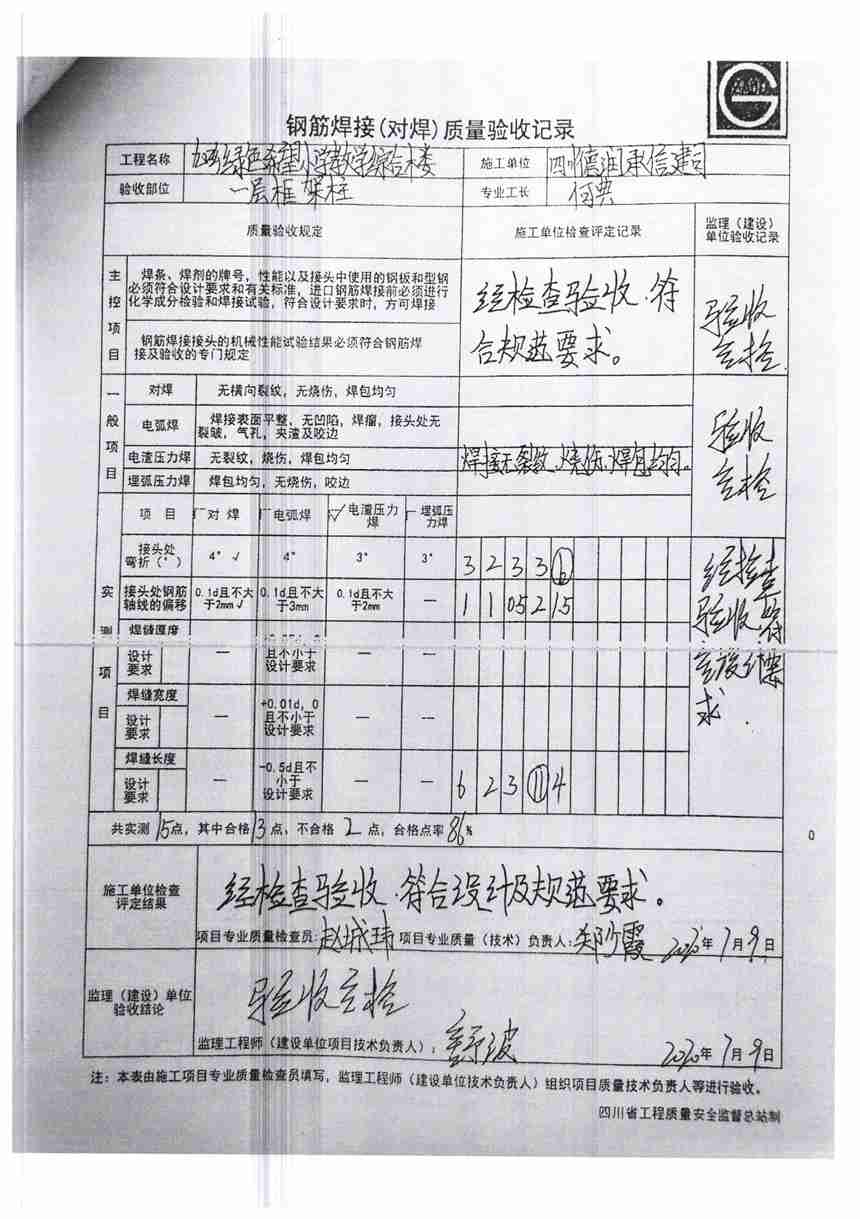 钢筋焊接(对焊)质量验收记录
工程名称 绿色希望小学教学综合楼 施工单位 四川德润承信建司
验收部位 一层框架柱 专业工长 何典
质量验收规定 施工单位检查评定记录 监理(建设)
单位验收记录
主控项目
焊条、焊剂的牌号,性能以及接头中使用的钢板和型钢
必须符合设计要求和有关标准,进口钢筋焊接前必须进行
化学成分检验和焊接试验,符合设计要求时,方可焊接
经检查验收.符
合规范要求。
验收
合格
钢筋焊接接头的机械性能试验结果必须符合钢筋焊
接及验收的专门规定
一般项目
对焊 无横向裂纹,无烧伤,焊包均匀
电弧焊 焊接表面平整、无凹陷,焊瘤,接头处无
裂皱,气孔,夹渣及咬边
电渣压力焊 无裂纹,烧伤,焊包均匀 焊接无裂纹.烧伤.焊包均匀。
埋弧压力焊 焊包均匀,无烧伤,咬边
验收
合格
实测项目
项目 对焊 电弧焊 √ 电渣压力
焊 埋弧压
力焊
接头处
弯折(°) 4° √ 4° 3° 3° 3 2 3 3 6
接头处钢筋
轴线的偏移 0.1d且不大
于2mm √ 0.1d且不大
于3mm 0.1d且不大
于2mm — 1 1 05 2 1.5
经检查
验收.符
合设计要
求.
焊缝厚度
设计
要求 — 且不小于
设计要求 — —
焊缝宽度
设计
要求 — +0.01d,0
且不小于
设计要求 — —
焊缝长度
设计
要求 — -0.5d且不
小于
设计要求 — — 6 2 3 11 4
共实测 15 点,其中合格 13 点,不合格 2 点,合格点率 86 %
0
施工单位检查
评定结果
经检查验收.符合设计及规范要求。
项目专业质量检查员:赵城玮 项目专业质量(技术)负责人:郑少霞 2020年7月9日
监理(建设)单位
验收结论
验收合格
监理工程师(建设单位项目技术负责人): 舒波 2020年7月9日
注:本表由施工项目专业质量检查员填写,监理工程师(建设单位技术负责人)组织项目质量技术负责人等进行验收。
四川省工程质量安全监督总站制